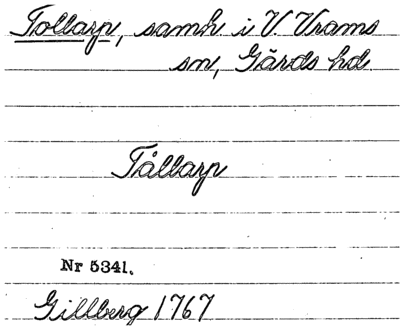 Tollarp, samh i V. Vrams
sn, Gärds hd.
Tållarp
Nr 5341.
Gillberg 1767